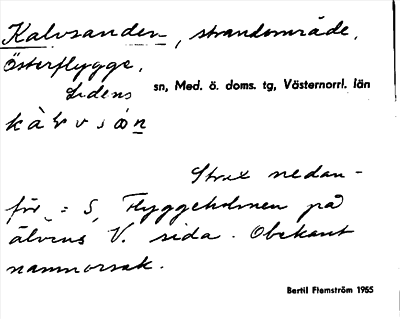 Kalvsanden, strandområde,
Österflygge,
Lidens sn, Med. ö. doms. tg, Västernorrl. län
Strax nedan-
för = S, Flyggeholmen på
älvens V. sida. Obekant
namnorsak.
Bertil Flemström 1965